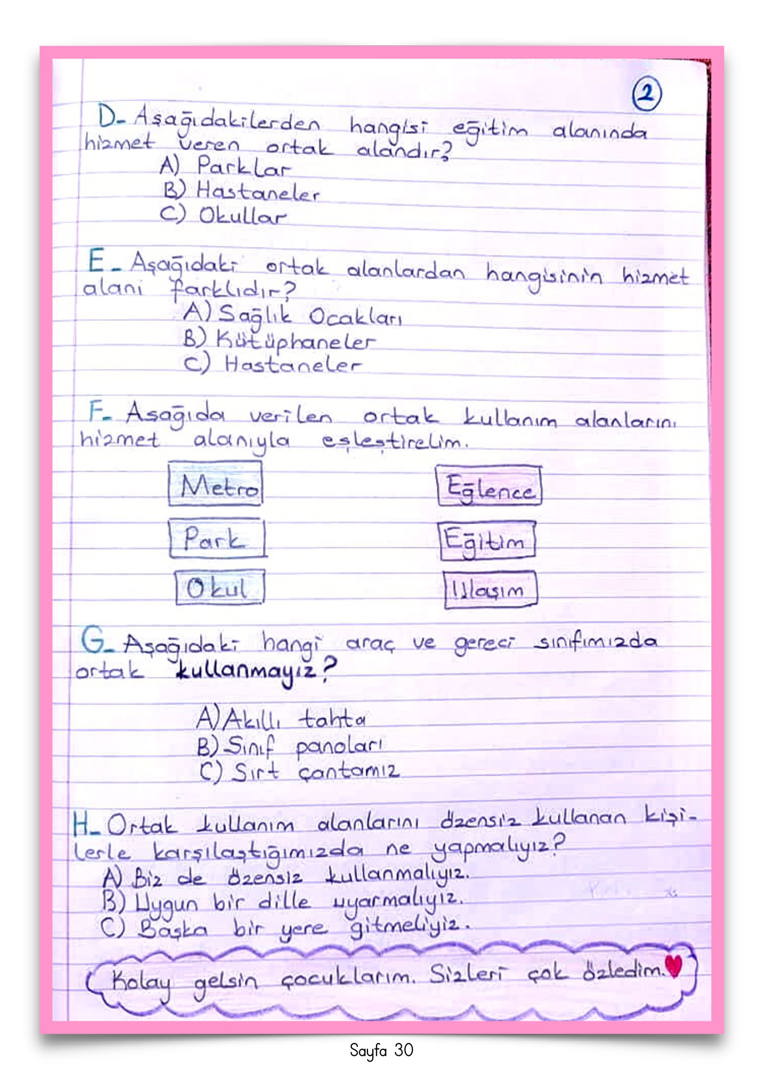 2
D- Aşağıdakilerden hangisi eğitim alanında
hizmet veren ortak alandır?
A) Parklar
B) Hastaneler
C) Okullar
E- Aşağıdaki ortak alanlardan hangisinin hizmet
alanı farklıdır?
A) Sağlık Ocakları
B) Kütüphaneler
C) Hastaneler
F- Aşağıda verilen ortak kullanım alanlarını
hizmet alanıyla eşleştirelim.
Metro Eğlence
Park Eğitim
Okul Ulaşım
G- Aşağıdaki hangi araç ve gereci sınıfımızda
ortak kullanmayız?
A) Akıllı tahta
B) Sınıf panoları
C) Sırt çantamız
H- Ortak kullanım alanlarını özensiz kullanan kişi-
lerle karşılaştığımızda ne yapmalıyız?
A) Biz de özensiz kullanmalıyız.
B) Uygun bir dille uyarmalıyız.
C) Başka bir yere gitmeliyiz.
Kolay gelsin çocuklarım. Sizleri çok özledim.
Sayfa 30